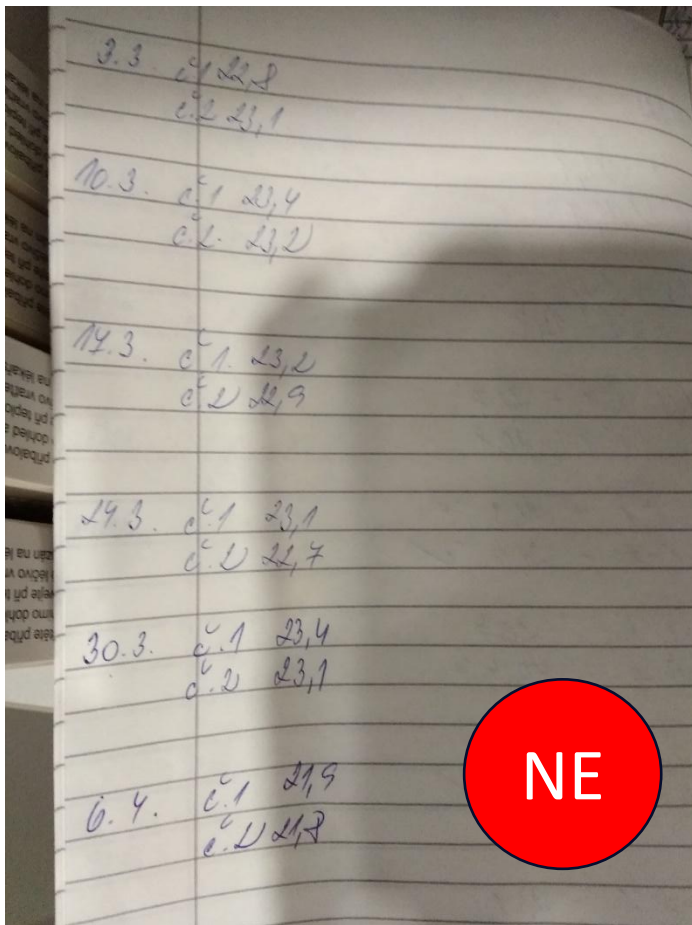 3.3. č.1 22,8
č.2 23,1
10.3. č.1 23,4
č.2. 23,2
17.3. č 1. 23,2
č 2 22,9
24.3. č.1 23,1
č.2 22,7
30.3. č.1 23,4
č.2 23,1
6.4. č.1 21,9
č.2 21,8
NE